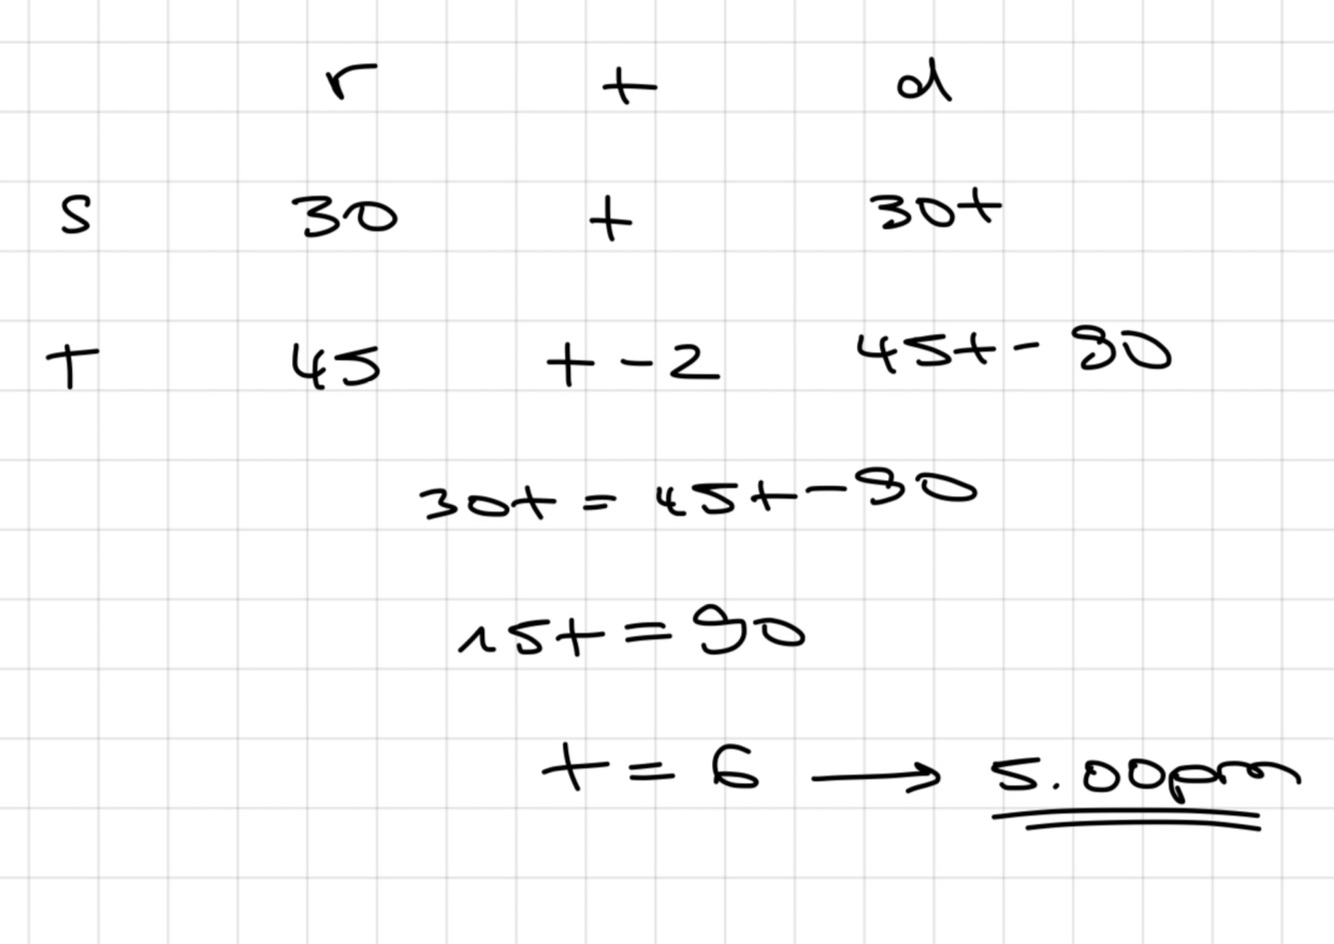 r t d
S 30 t 30t
T 45 t-2 45t-90
30t = 45t-90
15t = 90
t = 6 → 5.00pm